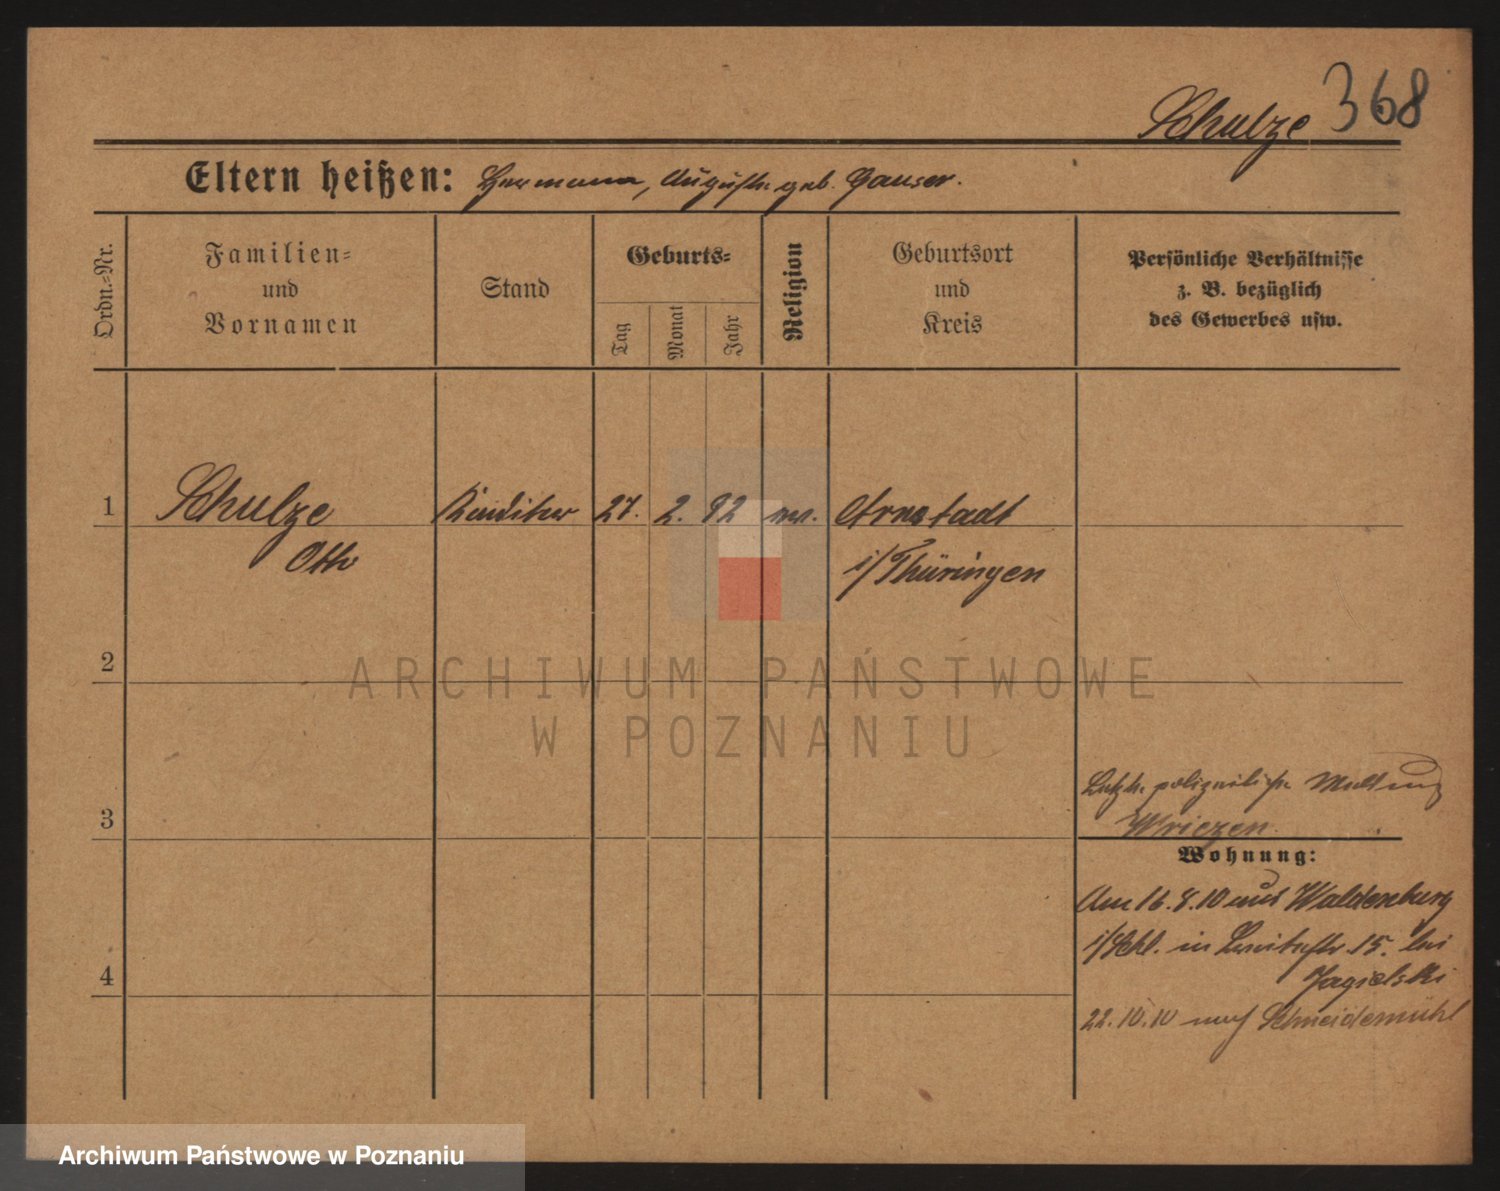 Schulze 368
Eltern heißen: Hermann, Auguste geb. Ganser.
Ordn.-Nr.
Familien-
und
Vornamen
Stand
Geburts-
Tag
Monat
Jahr
Religion
Geburtsort
und
Kreis
Persönliche Verhältnisse
z. B. bezüglich
des Gewerbes usw.
1 Schulze Konditor 27. 2. 92 ev. Arnstadt
Otto i/Thüringen
2
3
4
Letzte polizeiliche Meldung
Wriezen.
Wohnung:
Am 16.8.10 aus Waldenburg
i/Schl. in 15. bei
Jagielski
22.10.10 nach Schneidemühl
ARCHIWUM PAŃSTWOWE
W POZNANIU
Archiwum Państwowe w Poznaniu